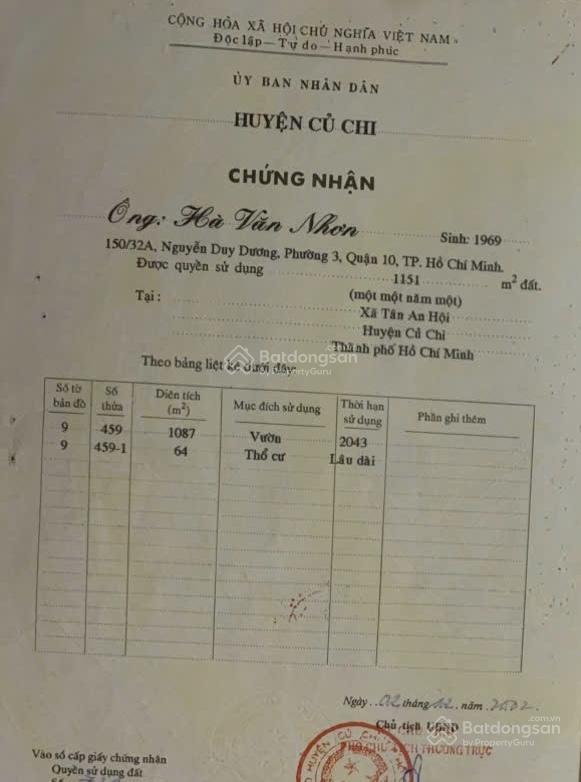 CỘNG HÒA XÃ HỘI CHỦ NGHĨA VIỆT NAM
Độc lập - Tự do - Hạnh phúc
ỦY BAN NHÂN DÂN
HUYỆN CỦ CHI
CHỨNG NHẬN
Ông: Hà Văn Nhơn Sinh: 1969
150/32A, Nguyễn Duy Dương, Phường 3, Quận 10, TP. Hồ Chí Minh.
Được quyền sử dụng 1151 m² đất.
(một một năm một)
Tại : Xã Tân An Hội
Huyện Củ Chi
Thành phố Hồ Chí Minh
Theo bảng liệt kê dưới đây:
Batdongsan
by PropertyGuru
Số tờ bản đồ Số thửa Diện tích (m²) Mục đích sử dụng Thời hạn sử dụng Phần ghi thêm
9 459 1087 Vườn 2043
9 459-1 64 Thổ cư Lâu dài
Ngày 02 tháng 12 năm 2002
Chủ tịch UBND
PHÓ CHỦ TỊCH THƯỜNG TRỰC
Batdongsan.com.vn
by PropertyGuru
HUYỆN CỦ CHI
Vào sổ cấp giấy chứng nhận
Quyền sử dụng đất